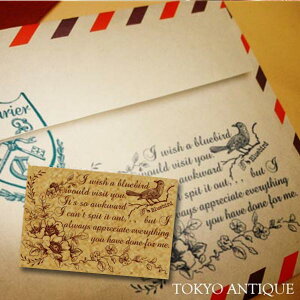 rier
I wish a bluebird
would visit you.
It's so awkward
I can't spit it out. . . but I
always appreciate everything
you have done for me.
a Bluebird
I wish a bluebird
would visit you.
It's so awkward
I can't spit it out. . . but I
always appreciate everything
you have done for me.
TOKYO ANTIQUE